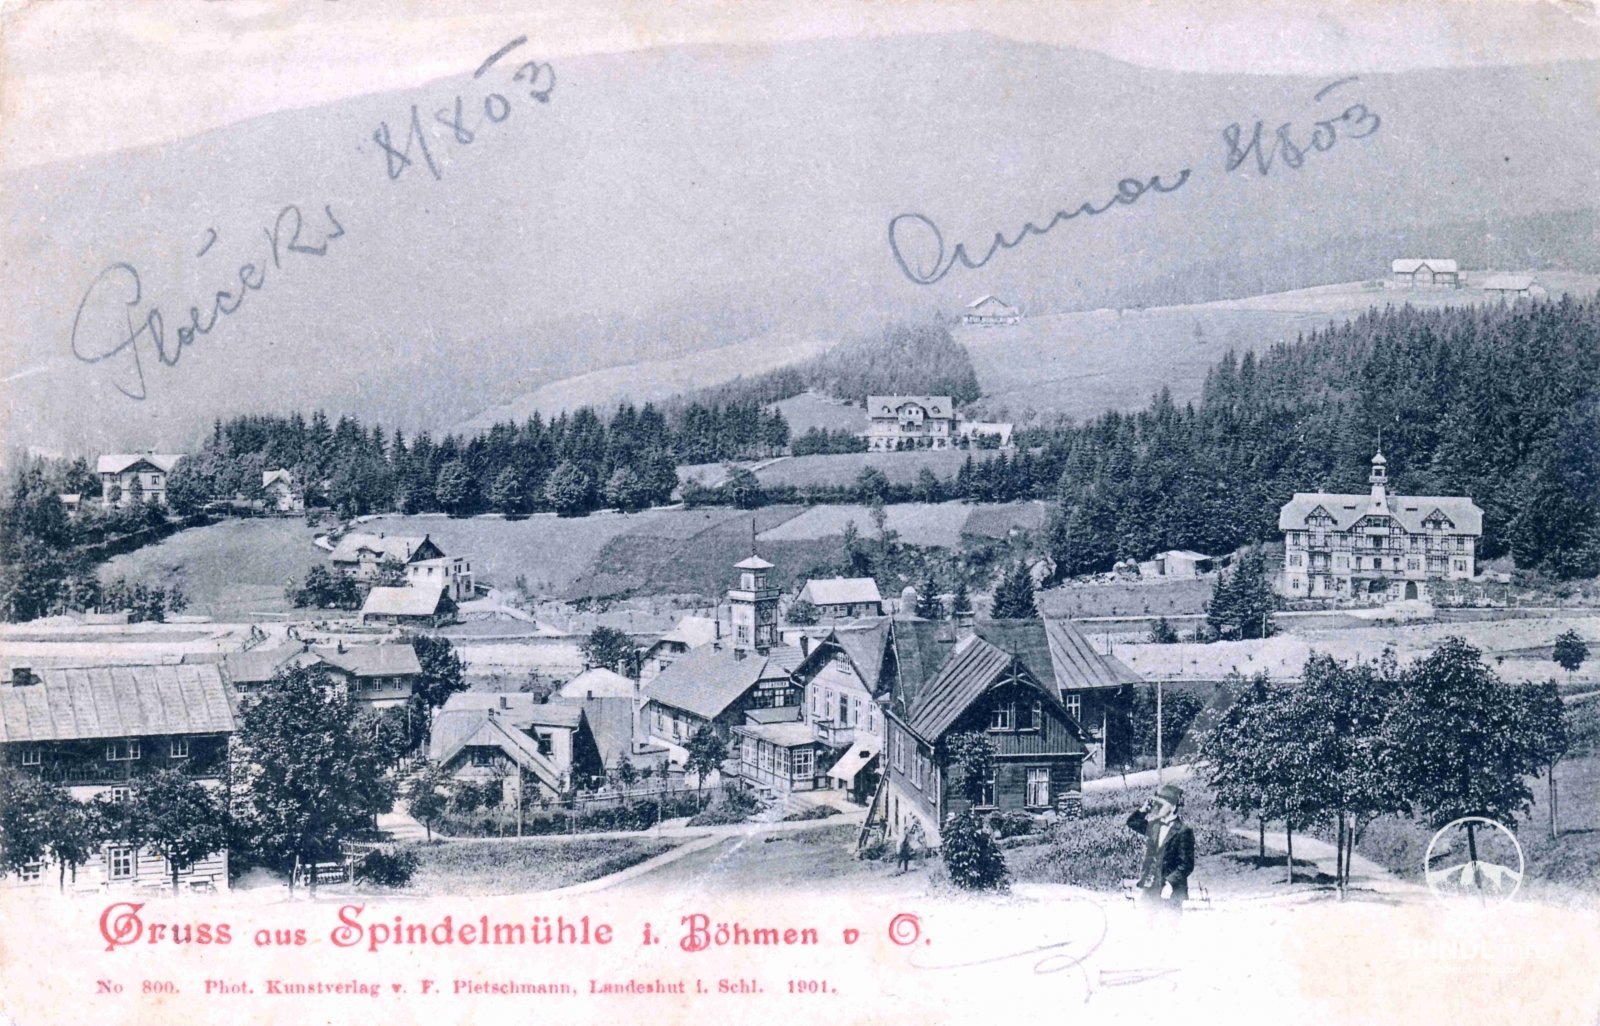 8/8 03
8/8 03
Gruss aus Spindelmühle i. Böhmen v O.
No 800. Phot. Kunstverlag v. F. Pietschmann, Landeshut i. Schl. 1901.